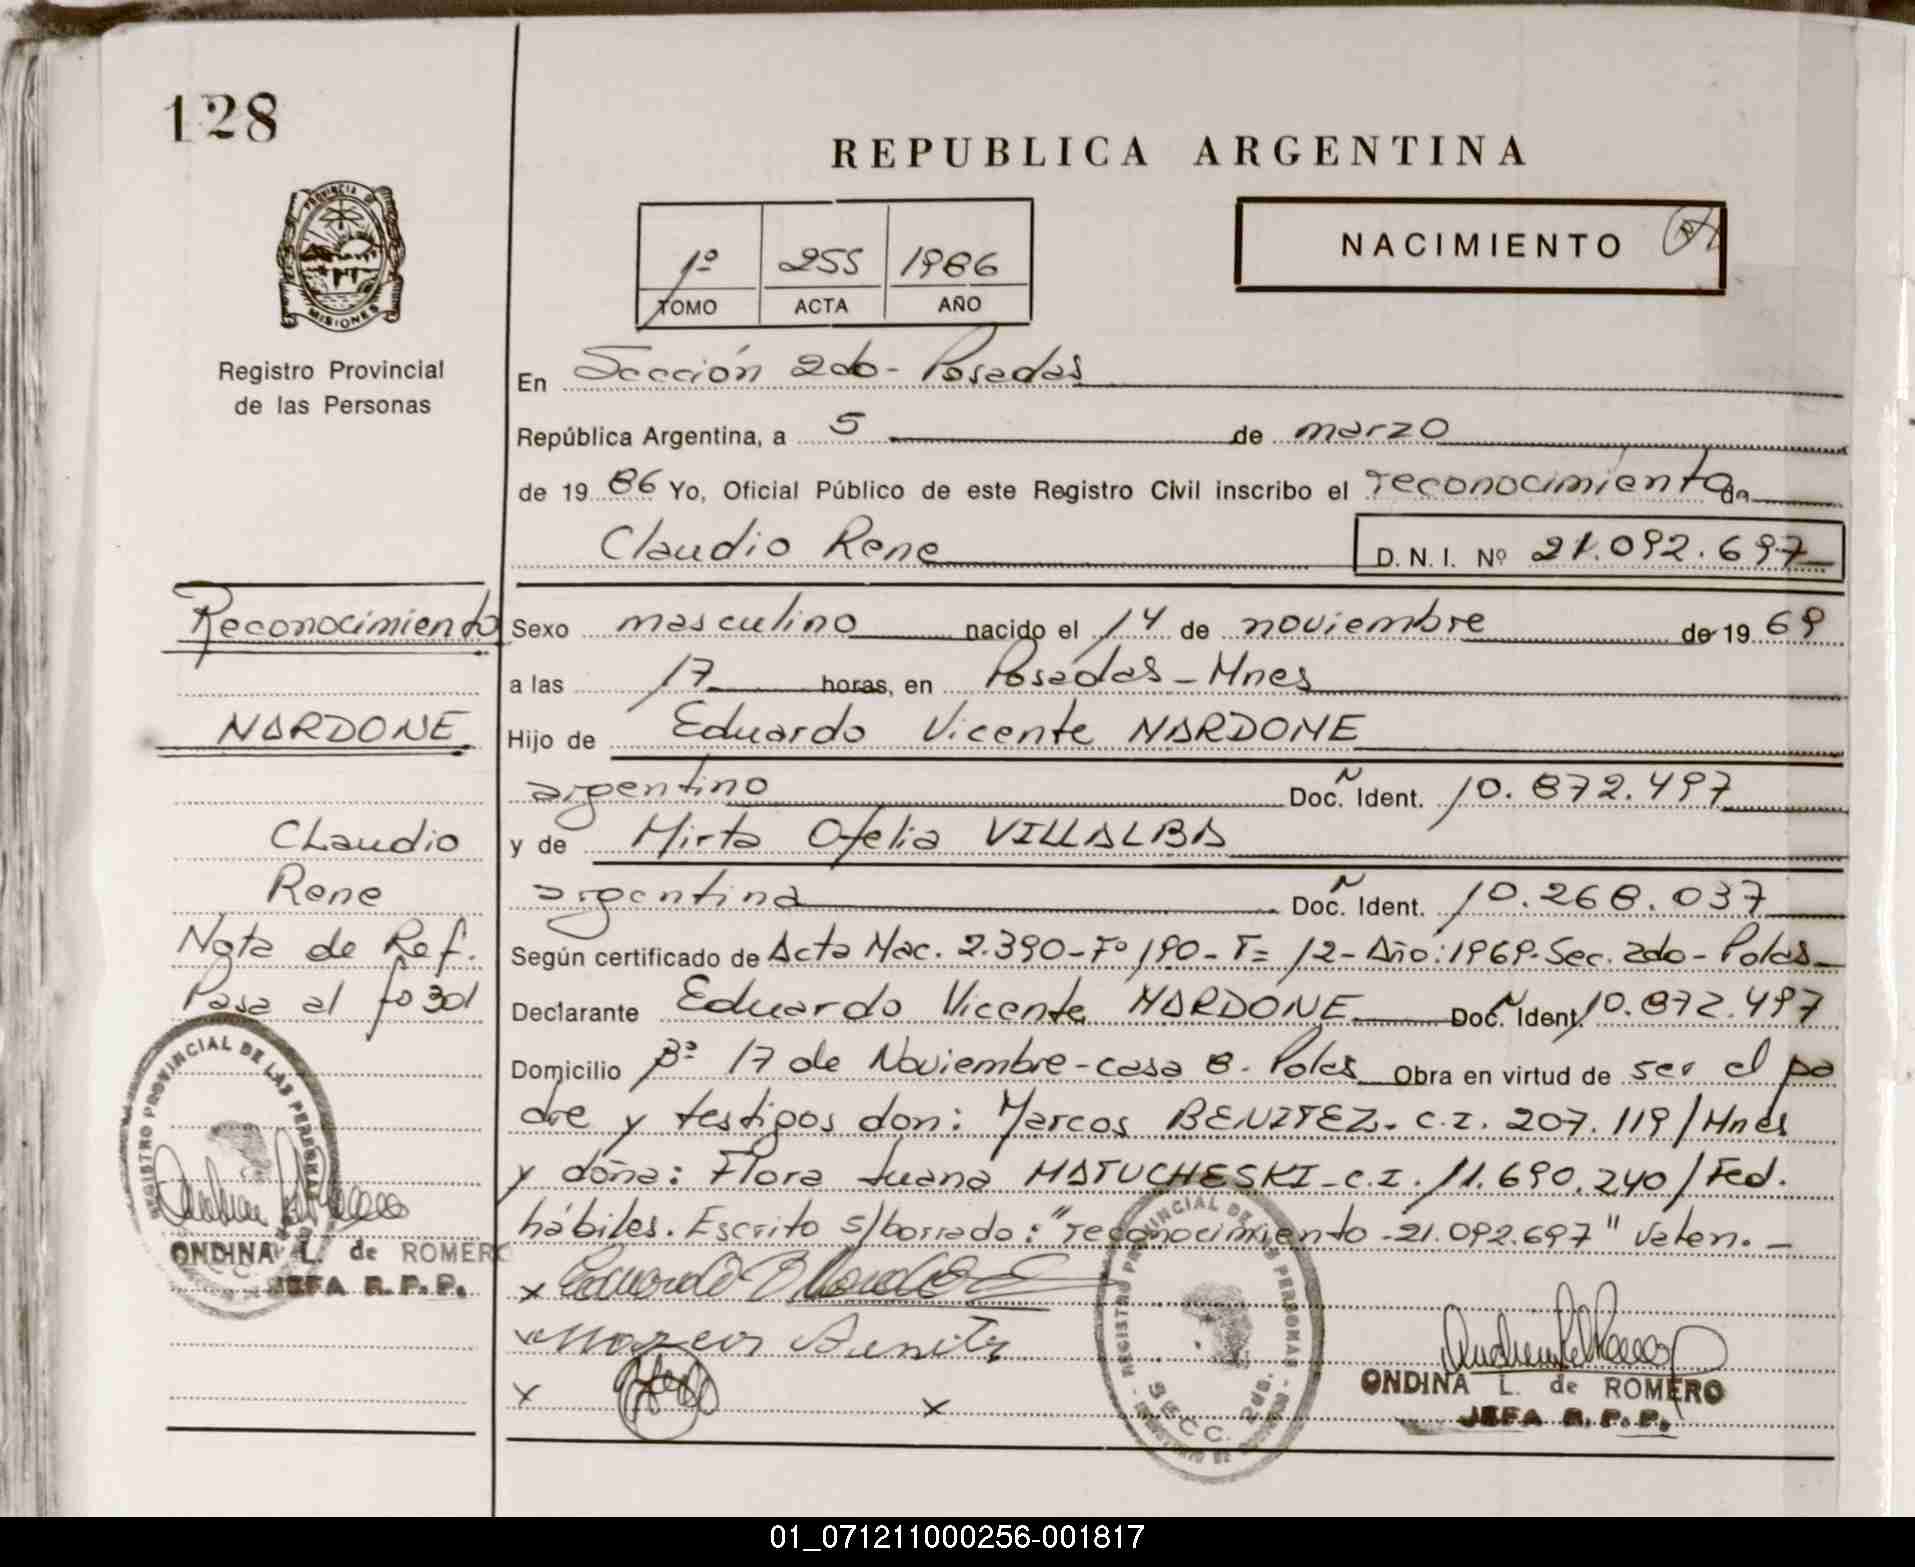 128
REPUBLICA ARGENTINA
PROVINCIA DE
MISIONES
1º 255 1986
TOMO ACTA AÑO
NACIMIENTO
Registro Provincial
de las Personas
En Sección 2do - Posadas
República Argentina, a 5 de marzo
de 1986 Yo, Oficial Público de este Registro Civil inscribo el reconocimiento de
Claudio Rene D. N. I. Nº 21.092.697
Reconocimiento
NARDONE
Claudio
Rene
Nota de Ref.
Pasa al fº 301
Sexo masculino nacido el 14 de noviembre de 1969
a las 17 horas, en Posadas - Mnes
Hijo de Eduardo Vicente NARDONE
argentino Doc. Ident. 10.872.497
y de Mirta Ofelia VILLALBA
argentina Doc. Ident. 10.268.037
Según certificado de Acta Nac. 2.390 - Fº 190 - T= 12 - Año: 1969 - Sec. 2do - Pdas
Declarante Eduardo Vicente NARDONE Doc. Ident. 10.872.497
Domicilio Bº 17 de Noviembre - casa 8. Pdas Obra en virtud de ser el pa
dre y testigos don: Marcos BENITEZ - C.I. 207.119/Mnes
y doña: Flora Juana MATUCHESKI - C.I. 11.690.240/Fed.
hábiles. Escrito s/borrado: "reconocimiento - 21.092.697" Valen. -
REGISTRO PROVINCIAL DE LAS PERSONAS
ONDINA L. de ROMERO
JEFA R. P. P.
REGISTRO PROVINCIAL DE LAS PERSONAS
SECC. 2da.
ONDINA L. de ROMERO
JEFA R. P. P.
01_071211000256-001817